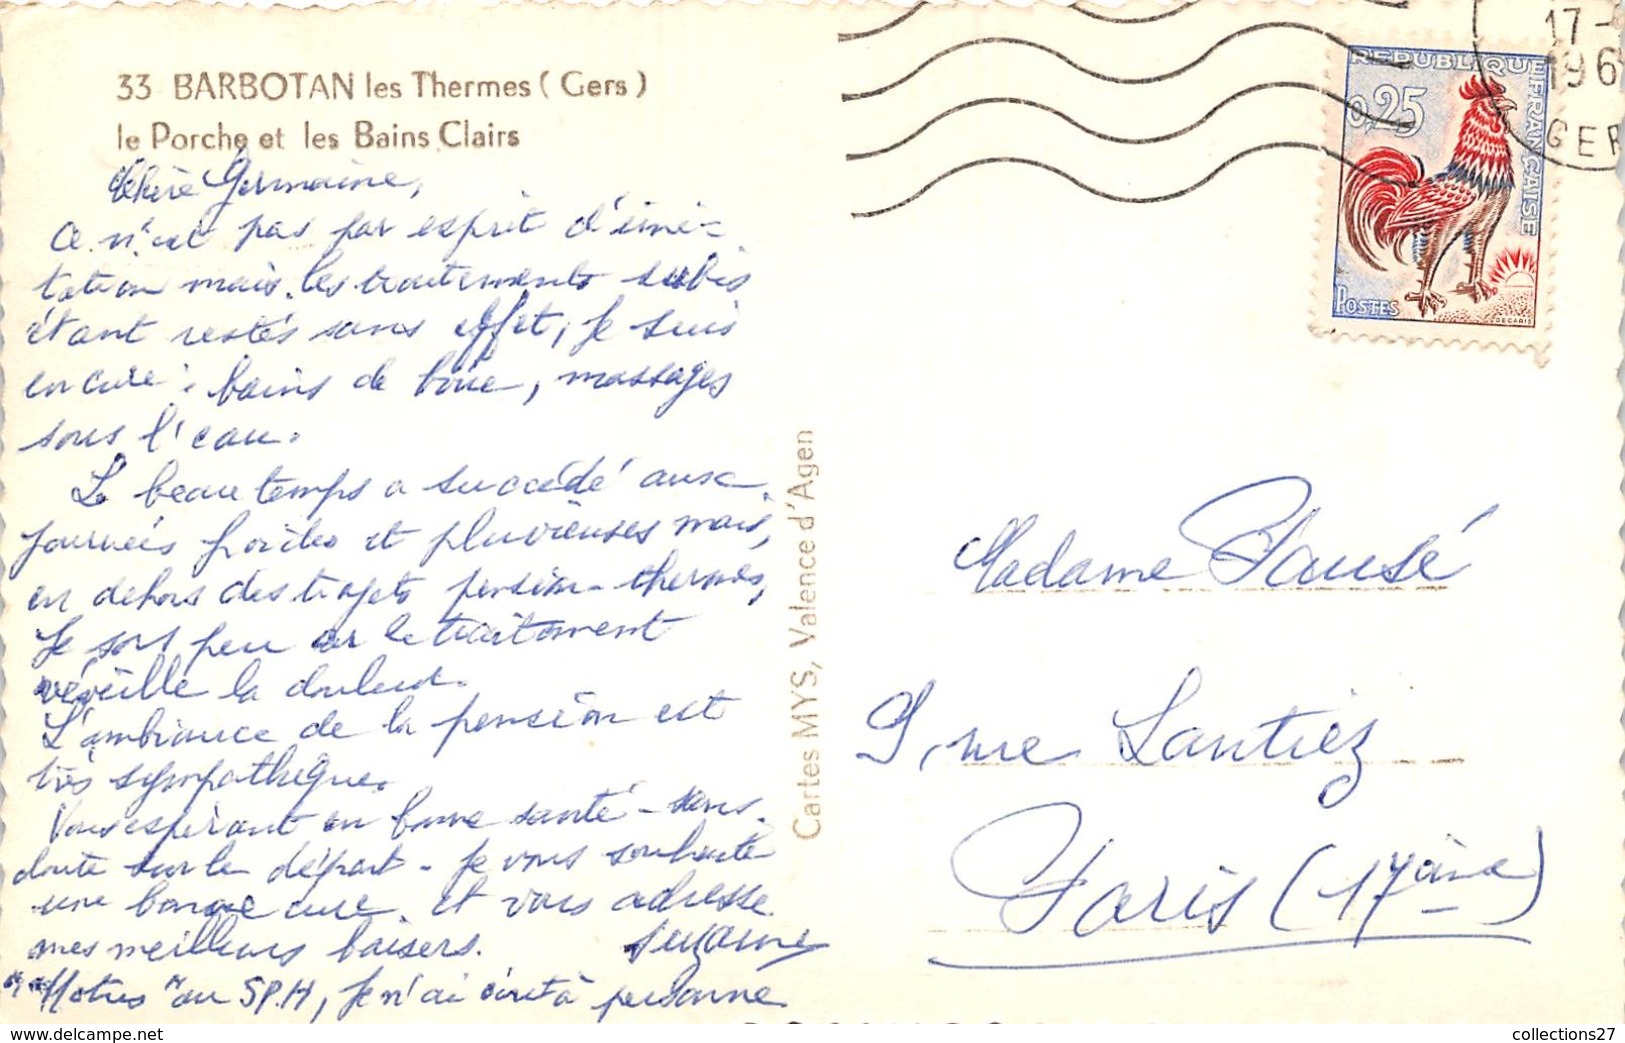 33 BARBOTAN les Thermes ( Gers )
le Porche et les Bains Clairs
Chère Germaine,
Ce n'est pas par esprit d'imi-
tation mais les traitements subis
étant restés sans effet, je suis
en cure : bains de boue, massages
sous l'eau.
Le beau temps a succédé aux
journées froides et pluvieuses mais,
en dehors des trajets pension-thermes,
je sors peu car le traitement
réveille la douleur.
L'ambiance de la pension est
très sympathique.
Vous espérant en bonne santé - sans
doute sur le départ - je vous souhaite
une bonne cure et vous adresse
mes meilleurs baisers. Suzanne
"Motus" au S.P.H, je n'ai écrit à personne
Cartes MYS, Valence d'Agen
17-
196
GER
REPUBLIQUE FRANÇAISE
0,25
POSTES
DECARIS
Madame Pausé
9, rue Lantiez
Paris (17ème)
collections27